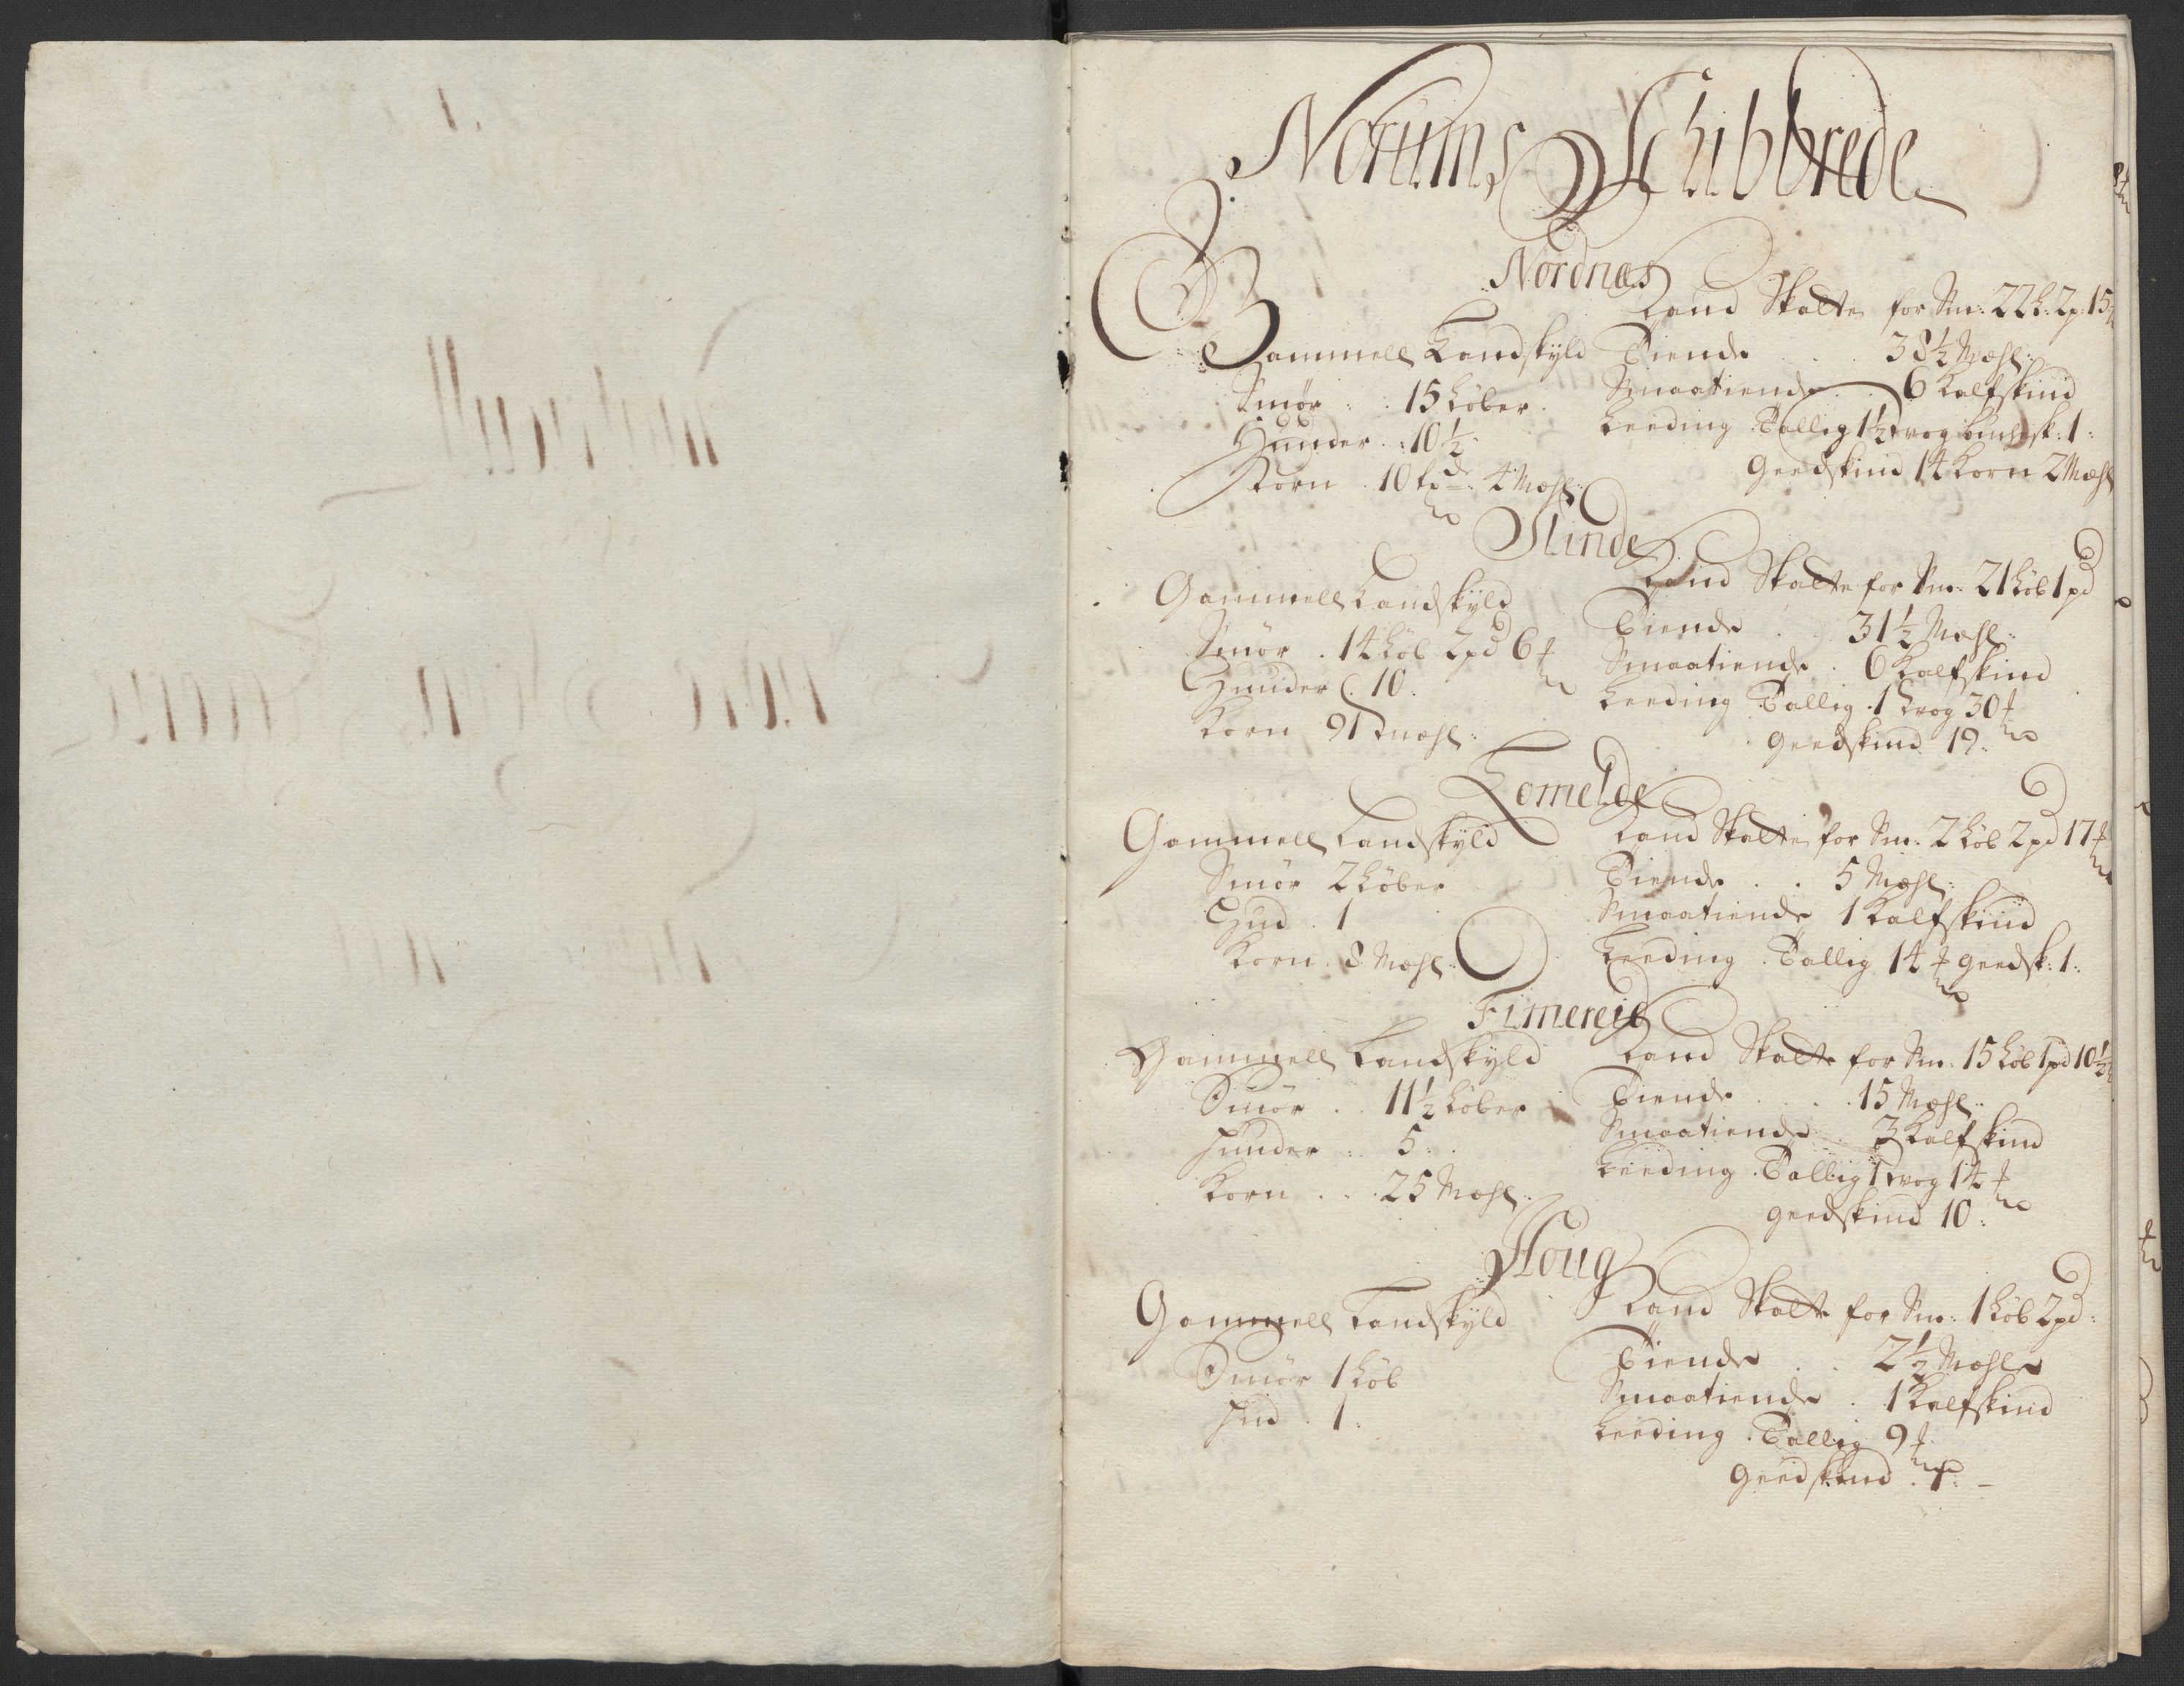 Norums Schibbrede
Nordnæs
Gammell Landskyld
Smør . . 15 Løber
Huuder . . 10 1/2
Korn . 10 td 4 Mæhl:
Land Skatte for Sm: 22 L: 2 p: 15
Tiende . . . 38 1/2 Mæhl:
Smaatiende . . 6 Kalfskind
Leeding Tallig 1 1/2 Wog 1:
Geedskind 14 Korn 2 Mæhl
Slinde
Gammell Landskyld
Smør . 14 Løb 2 pd 6
Huuder . 10.
Korn 91 Mæhl:
Land Skatte for Sm: 21 Løb 1 pd
Tiende . . 31 1/2 Mæhl:
Smaatiende . 6 Kalfskind
Leeding Tallig . 1 Wog 30
Geedskind 19:
Lomelde
Gammell Landskyld
Smør 2 Løber
Hud . 1
Korn . 8 Mæhl:
Land Skatte for Sm: 2 Løb 2 pd 17
Tiende . . 5 Mæhl:
Smaatiende 1 Kalfskind
Leeding . Tallig 14 Geedsk: 1:
Fimereid
Gammell Landskyld
Smør . . 11 1/2 Løber
Huuder . . 5 . .
Korn . . . 25 Mæhl:
Land Skatte for Sm: 15 Løb 1 pd 10 1/2
Tiende . . . . 15 Mæhl:
Smaatiende . . 3 Kalfskind
Leeding . Tallig 1 Wog 14
Geedskind 10:
Houg
Gammell Landskyld
Smør 1 Løb
Hud . 1:
Land Skatte for Sm: 1 Løb 2 pd:
Tiende . . 2 1/2 Mæhle
Smaatiende . 1 Kalfskind
Leeding . Tallig 9
Geedskind . 1: -